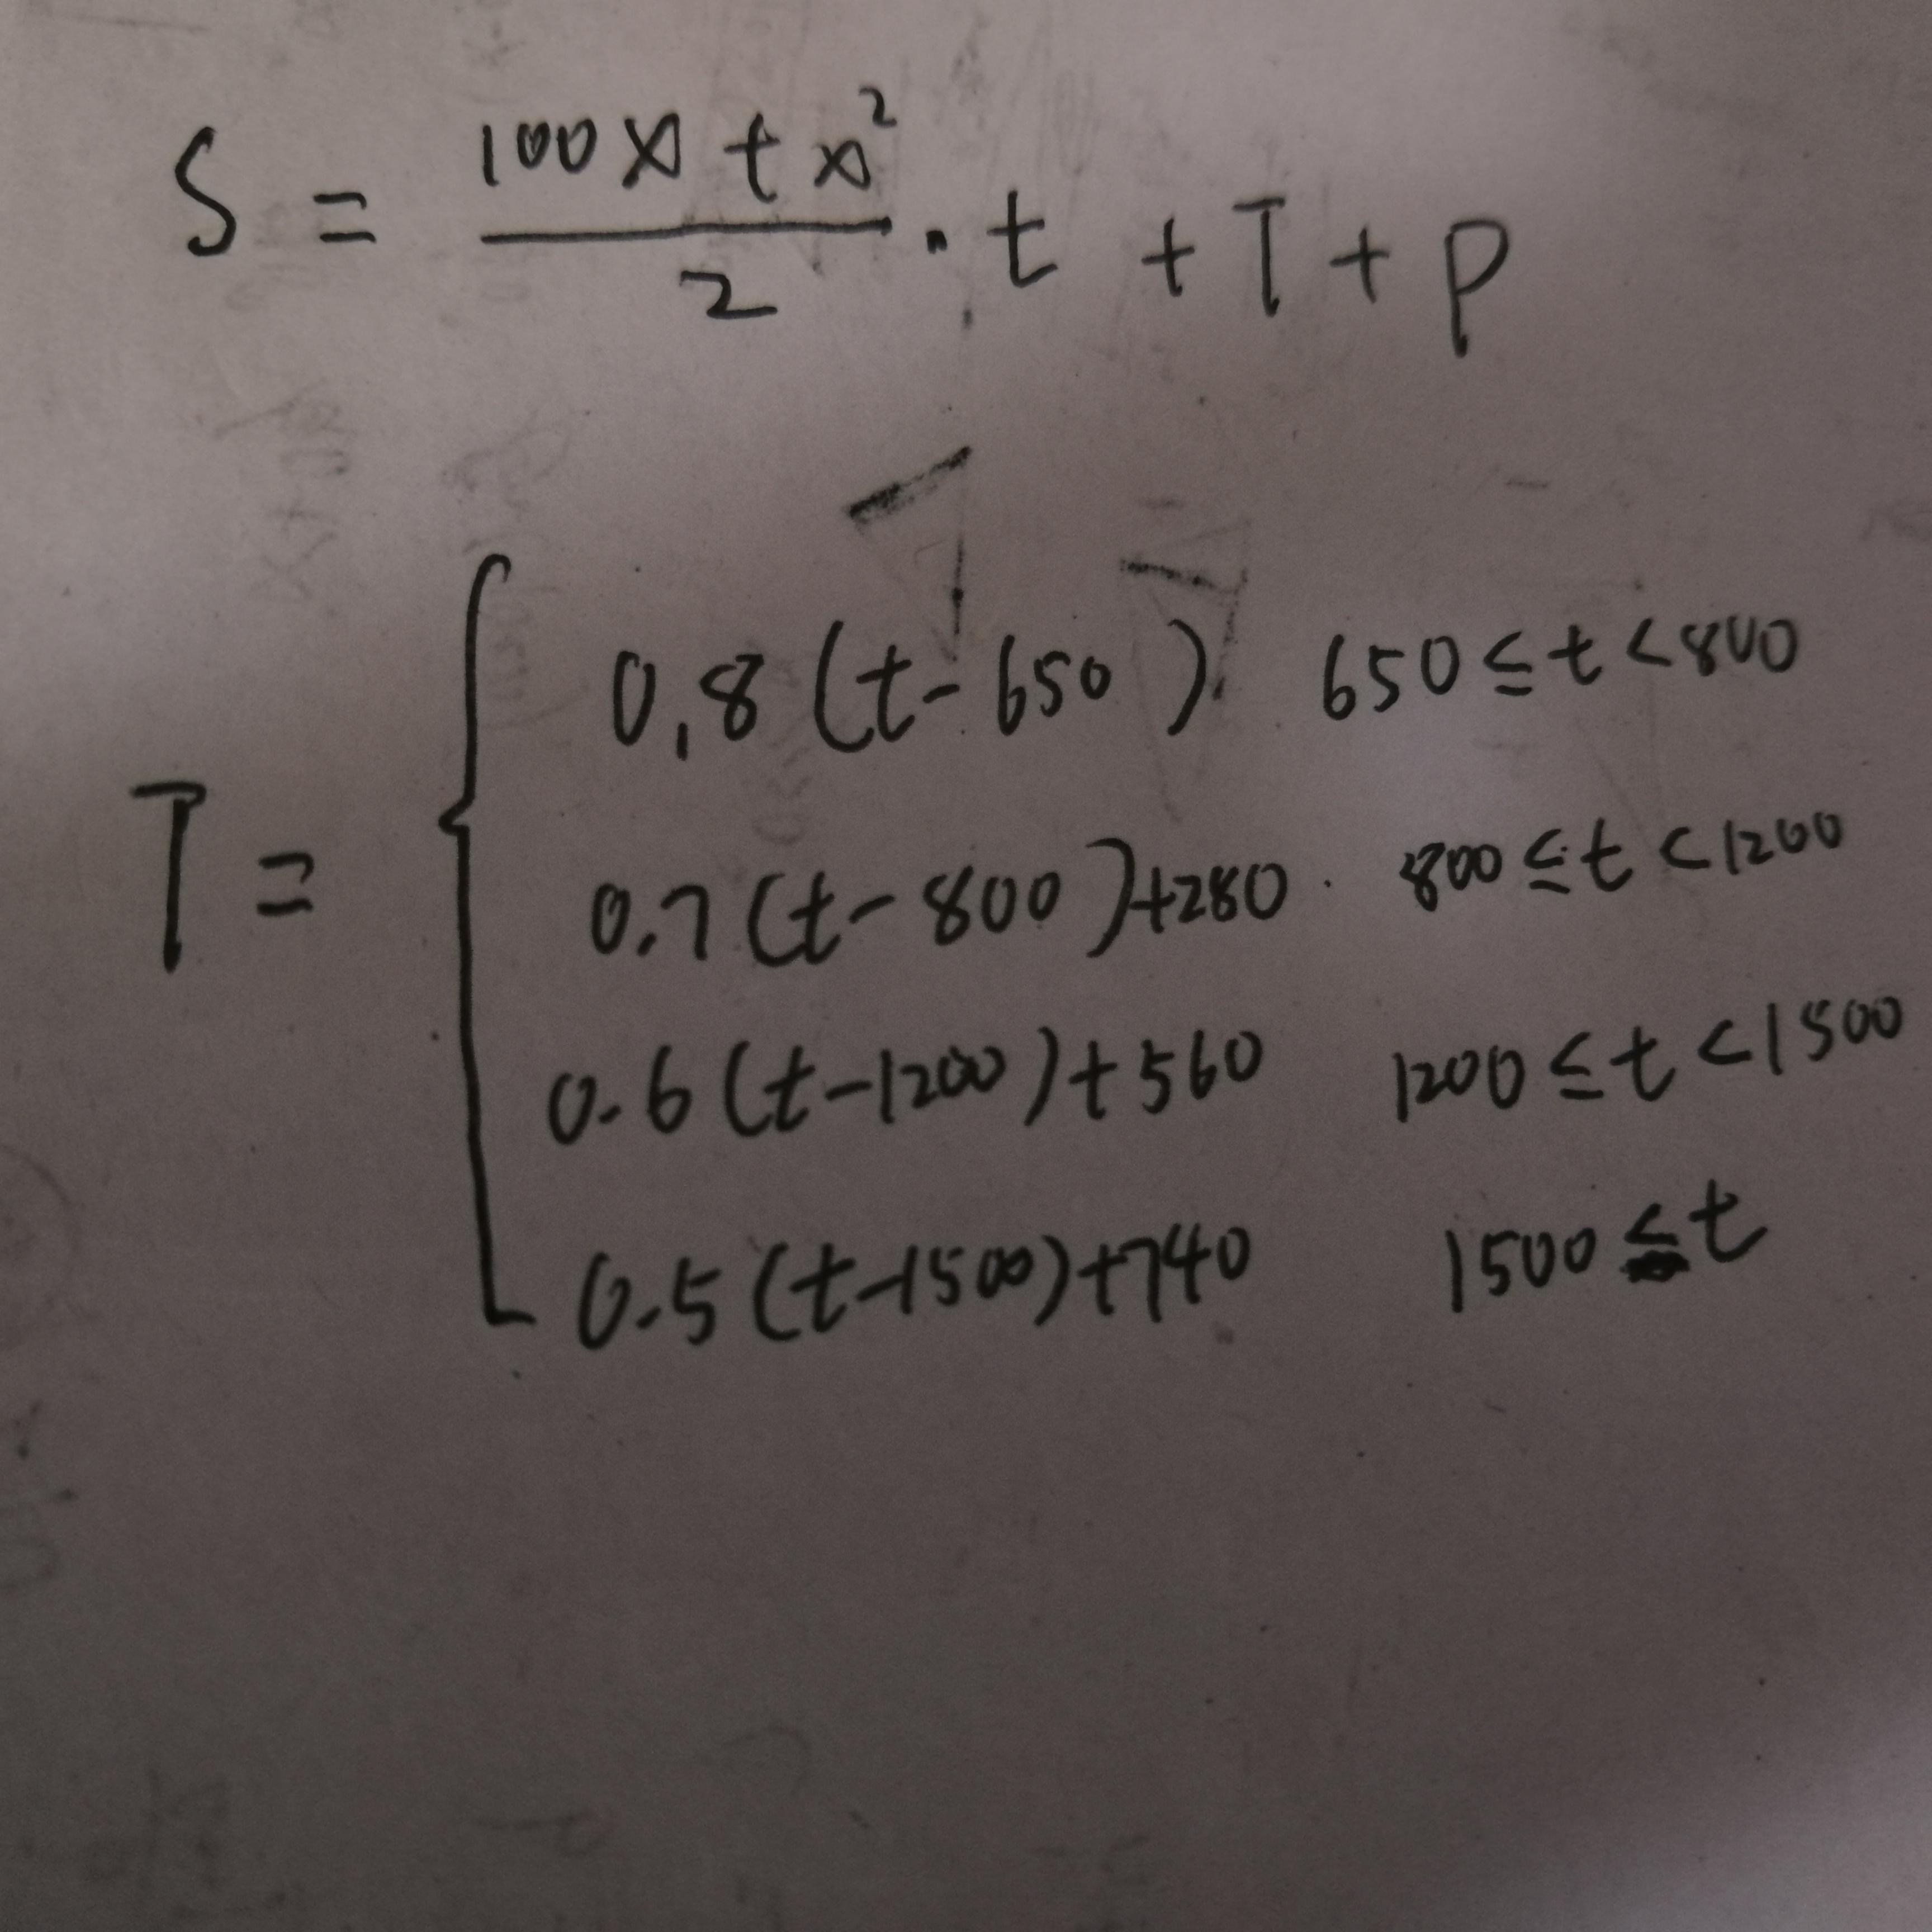 S = \frac{100x + x^2}{2} \cdot t + T + p
T = {
0.8 (t - 650) 650 ≤ t < 800
0.7 (t - 800) + 280 800 ≤ t < 1200
0.6 (t - 1200) + 560 1200 ≤ t < 1500
0.5 (t - 1500) + 740 1500 ≤ t